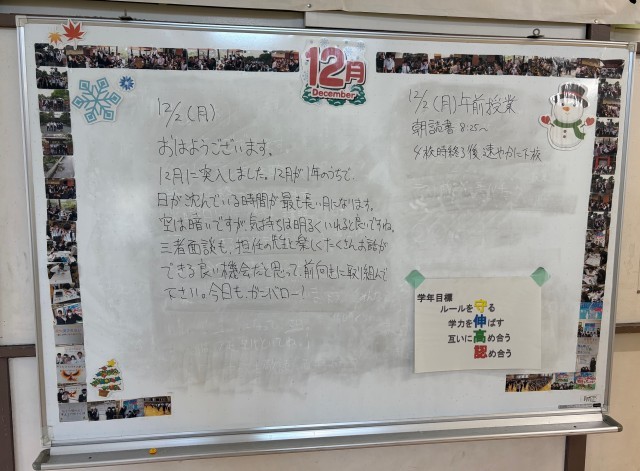 12月
December
12/2 (月)
おはようございます。
12月に突入しました。12月が1年のうちで、
日が沈んでいる時間が最も長い月になります。
空は暗いですが、気持ちは明るくいれると良いですね。
三者面談も、担任の先生と楽しくたくさんお話が
できる良い機会だと思って、前向きに取り組んで
下さい。今日も、ガンバロー!
12/2 (月) 午前授業
朝読書 8:25〜
4校時終了後 速やかに下校
学年目標
ルールを守る
学力を伸ばす
互いに高め合う
認め合う